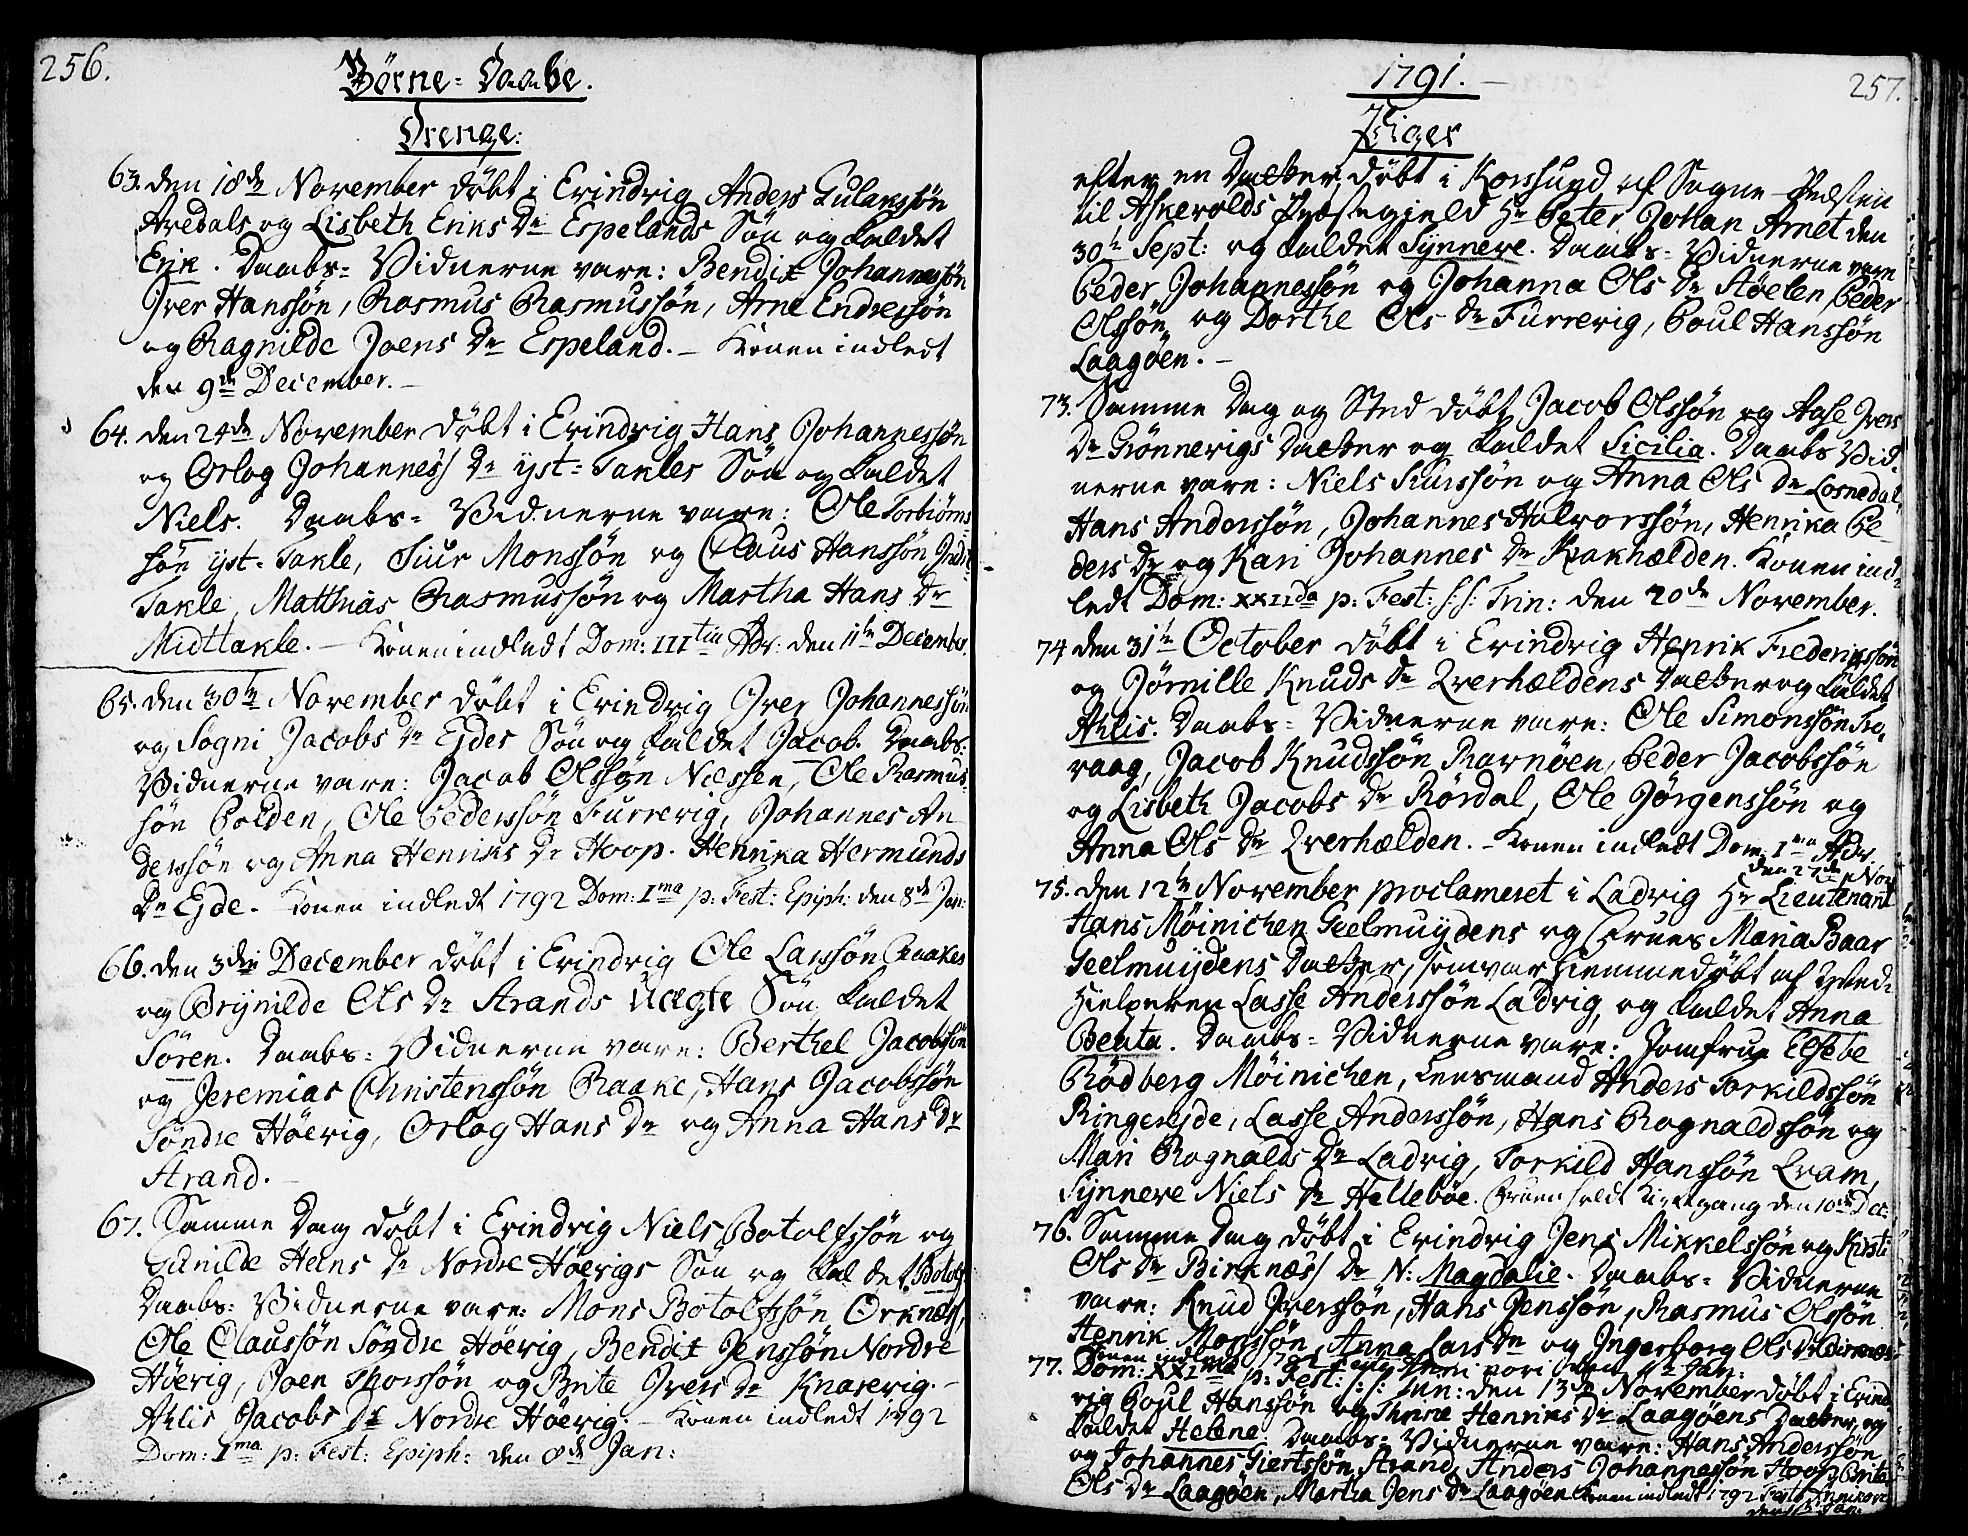 256.
Børne-Daabe.
Drenge:
63. den 18de November døbt i Evindvig Anders Gulakssøn
Aredals og Lisbeth Eriks Dr Espelands Søn og kaldet
Erik. Daabs-Vidnerne vare: Bendix Johannessøn
Iver Hanssøn, Rasmus Rasmussøn, Arne Endressøn
og Ragnilde Joens Dr Espeland. – Konen indledt
den 9de December. –
64. den 24de November døbt i Evindvig Hans Johannessøn
og Orlog Johannes Dr yst-Takles Søn og kaldet
Niels. Daabs-Vidnerne vare: Ole Torbiørns
søn yst-Takle, Siur Monssøn og Claus Hanssøn
Takle, Matthias Rasmussøn og Martha Hans Dr
Midttakle. – Konen indledt Dom: IIItia Adv: den 11te Decembr.
65. den 30te November døbt i Evindvig Iver Johannessøn
og Sogni Jacobs Dr Ejdes Søn og kaldet Jacob. Daabs-
Vidnerne vare: Jacob Olssøn Næssen, Ole Rasmus-
søn Polden, Ole Pederssøn Furrevig, Johannes An
derssøn og Anna Henriks Dr Hoop. Henrika Hermunds
Dr Ejde. Konen indledt 1792 Dom: Ima p: Fest: Epiph: den 8de Jan:
66. den 3die December døbt i Evindvig Ole Larssøn Raakes
og Brynilde Ols Dr Strands Uægte Søn kaldet
Søren. Daabs-Vidnerne vare: Berthel Jacobssøn
og Jeremias Christenssøn Raake, Hans Jacobssøn
Søndre Høevig, Orlog Hans Dr og Anna Hans Dr
Strand. –
67. Samme Dag døbt i Evindvig Niels Botolfssøn og
Gunilde Heins Dr Nordre Høevigs Søn og kaldet Botolf
Daabs-Vidnerne vare: Mons Botolfssøn Orknes,
Ole Claussøn Søndre Høevig, Bendix Jenssøn Nordre
Høevig, Joen Thorssøn og Brite Ivers Dr Knarevig. –
Ahlis Jacobs Dr Nordre Høevig. – Konen indledt 1792
Dom: Ima p: Fest: Epiph: den 8de Jan:
1791. –
257.
Piger
efter en Datter døbt i Korssund af Sogne-Præsten
til Askevolds Præstegield Hr Peter Johan Arnet den
30te Sept: og kaldet Synneve. Daabs-Vidnerne vare
Peder Johannessøn og Johanna Ols Dr Støelen, Peder
Olssøn og Dorthe Ols Dr Furrevig, Poul Hanssøn
Laagøen. –
73. Samme Dag og Sted døbt Jacob Olssøn og Aase Ivers
Dr Grønnevigs Datter og kaldet Sicilia. Daabs Vid-
nerne vare: Niels Siurssøn og Anna Ols Dr Losnedal
Hans Anderssøn, Johannes Halvorssøn, Henrika Pe-
ders Dr og Kari Johannes Dr Krakhælden. Konen ind-
ledt Dom: XXIIda p: Fest: S:S: Trin: den 20de November.
74 den 31te October døbt i Evindvig Henrik Frederikssøn
og Jørnille Knuds Dr Qverhældens Datter og kaldet
Ahlis. Daabs-Vidnerne vare: Ole Simonssøn
raag, Jacob Knudssøn Ravnøen, Peder Jacobssøn
og Lisbeth Jacobs Dr Rørdal, Ole Jørgenssøn og
Anna Ols Dr Qverhælden. – Konen indledt Dom: Ima Adv.
den 27de Nov
75. den 12te November proclameret i Ladvig Hr Lieutenant
Hans Møinichen Geelmuydens og Frues Maria Baar
Geelmuydens Datter, som var Hiemmedøbt af Med-
hielperen Lasse Anderssøn Ladvig, og kaldet Anna
Benta. Daabs-Vidnerne vare: Jomfrue Elsebe
Rødberg Møinichen, Lensmand Anders Torkildssøn
Ringerejde, Lasse Anderssøn, Hans Rognaldssøn og
Mari Rognalds Dr Ladvig, Torkild Hanssøn Qvam,
Synneve Niels Dr Hellebøe. Fruen holdt Kirkegang den 10de Dec:
76. Samme Dag døbt i Evindvig Jens Mikkelssøn og Kirsti
Ols Dr Birknes Dr N: Magdalie. Daabs-Vidnerne
vare: Knud Iverssøn, Hans Jenssøn, Rasmus Olssøn
Henrik Monssøn, Anna Lars Dr og Ingerborg Ols Dr Birknes
Konen indledt 1792 Festo Anni novi den 1te Jan:
77. Dom: XXIma p: Fest: S:S: Trin: den 13de November døbt i Evind
vig Poul Hanssøn og Thrine Henriks Dr Laagøens Datter, og
kaldet Helene. Daabs-Vidnerne vare: Hans Anderssøn
og Johannes Giertssøn Strand, Anders Johannessøn Hoop, Brita
Ols Dr Laagøen, Martha Jens Dr Laagøen Konen indledt 1792 Festo Anni novi
den 1te Jan: